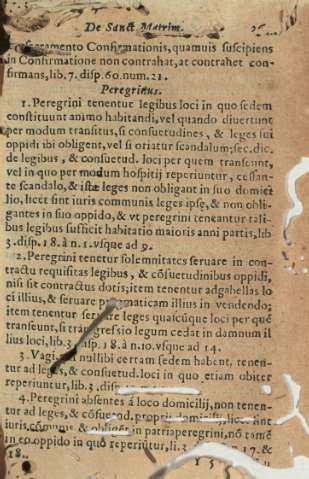 De Sanct. Matrim.
Sacramento Confirmationis, quamuis suscipiens
in Confirmatione non contrahat, at contrahet con-
firmans, lib. 7. disp. 60. num. 21.
Peregrinus.
1. Peregrini tenentur legibus loci in quo sedem
constituunt animo habitandi, vel quando diuertunt
per modum transitus, si consuetudines, & leges sui
oppidi ibi obligent, vel si oriatur scandalum; sec. dic.
de legibus, & consuetud. loci per quem transeunt,
vel in quo per modum hospitij reperiuntur, cessan-
te scandalo, & istæ leges non obligant in suo domici
lio, licet sint iuris communis leges ipsę, & non obli-
gantes in suo oppido, & vt peregrini teneantur tali-
bus legibus sufficit habitatio maioris anni partis, lib
3. disp. 18. à n. 1. vsque ad 9.
2. Peregrini tenetur solemnitates seruare in con-
tractu requisitas legibus, & cōsuetudinibus oppidi,
nisi sit contractus dotis; item tenentur adgabellas lo
ci illius, & seruare pragmaticam illius in vendendo;
item tenentur seruare leges quascūque loci per quē
transeunt, si transgressio legum cedat in damnum il
lius loci, lib. 3. disp. 18. à n. 10. vsque ad 14.
3. Vagi, qui nullibi certam sedem habent, tenen-
tur ad leges, & consuetud. loci in quo etiam obiter
reperiuntur, lib. 3. disp.
4. Peregrini absentes á loco domicilij, non tenen-
tur ad leges, & cōsuetud. proprij domicilij, licet sint
iuris cōmunis, & obligēt in patria peregrini, nō tamē
in eo oppido in quo reperiūtur, li. 3. 17. &
18.